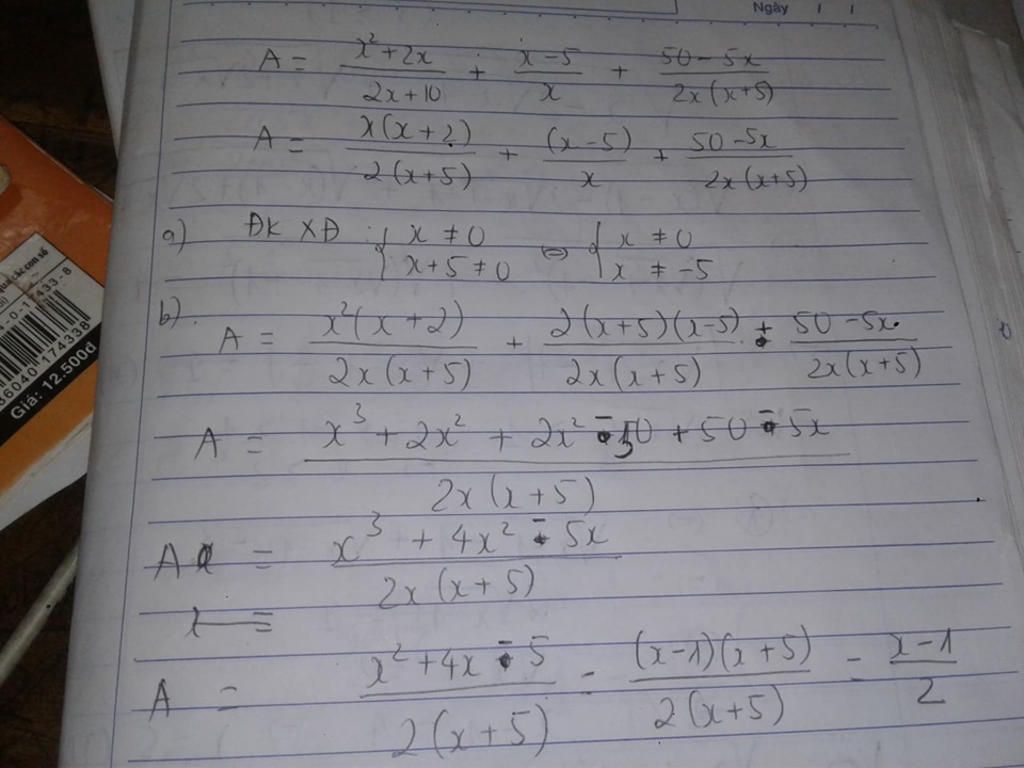 Ngày
A = \frac{x^2+2x}{2x+10} + \frac{x-5}{x} + \frac{50-5x}{2x(x+5)}
A = \frac{x(x+2)}{2(x+5)} + \frac{(x-5)}{x} + \frac{50-5x}{2x(x+5)}
a) ĐK XĐ: { x ≠ 0 ; x+5 ≠ 0 ⇔ { x ≠ 0 ; x ≠ -5
b)
A = \frac{x^2(x+2)}{2x(x+5)} + \frac{2(x+5)(x-5)}{2x(x+5)} + \frac{50-5x}{2x(x+5)}
A = \frac{x^3+2x^2+2x^2-50+50-5x}{2x(x+5)}
A = \frac{x^3+4x^2-5x}{2x(x+5)}
A = \frac{x^2+4x-5}{2(x+5)} = \frac{(x-1)(x+5)}{2(x+5)} = \frac{x-1}{2}
Giá: 12.500đ